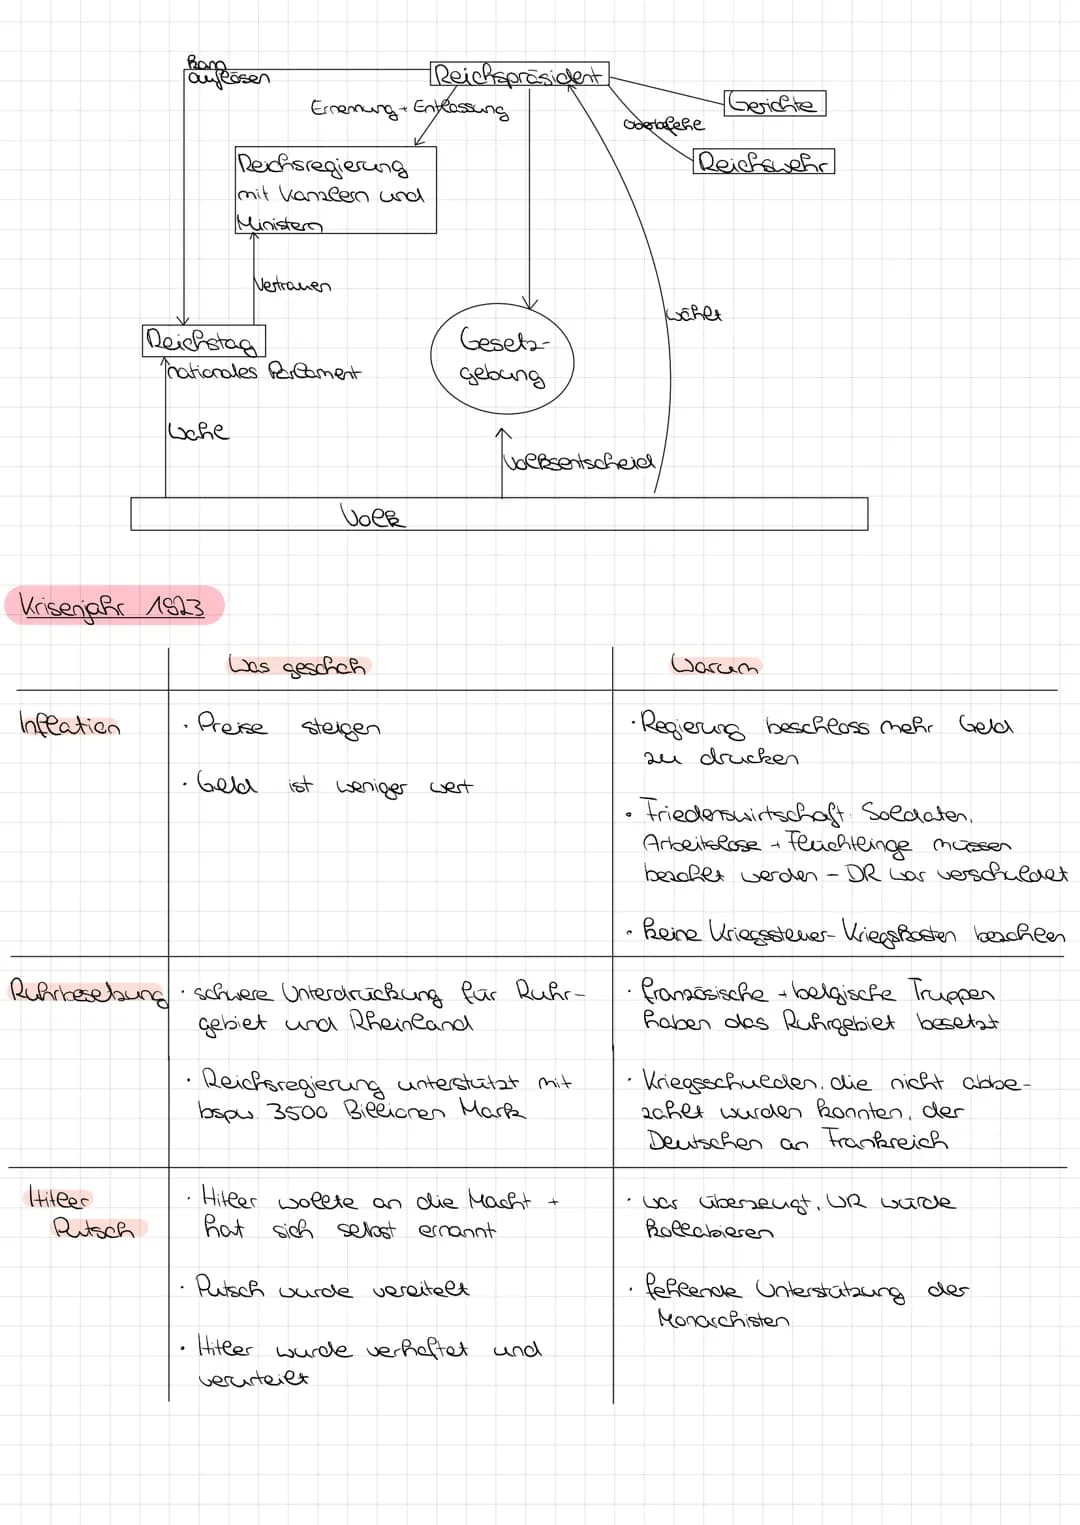 kann
auflösen
Reichspräsident
Ernennung + Entlassung
Gerichte
Oberbefehl
Reichswehr
Reichsregierung
mit Kanzlern und
Ministern
Vertrauen
wählt
Reichstag
nationales Parlament
Gesetz-
gebung
Wahl
Volksentscheid
Volk
Krisenjahr 1923
Was geschah
Warum
Inflation
· Preise steigen
· Geld ist weniger wert
· Regierung beschloss mehr Geld
zu drucken
· Friedenswirtschaft: Soldaten,
Arbeitslose + Flüchtlinge müssen
bezahlt werden - DR war verschuldet
· keine Kriegssteuer - Kriegskosten bezahlen
Ruhrbesetzung
· schwere Unterdrückung für Ruhr-
gebiet und Rheinland
· Reichsregierung unterstützt mit
bspw. 3500 Billionen Mark
· französische + belgische Truppen
haben das Ruhrgebiet besetzt
· Kriegsschulden, die nicht abbe-
zahlt wurden konnten, der
Deutschen an Frankreich
Hitler
Putsch
· Hitler wollte an die Macht +
hat sich selbst ernannt
· Putsch wurde vereitelt
· Hitler wurde verhaftet und
verurteilt
· war überzeugt, WR würde
kollabieren
· fehlende Unterstützung der
Monarchisten